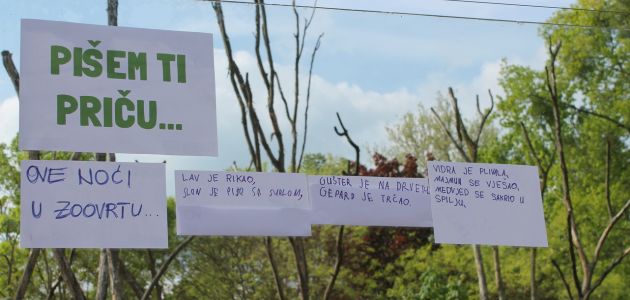 PIŠEM TI
PRIČU...
OVE NOĆI
U ZOOVRTU...
LAV JE RIKAO,
SLON JE PIO SA SURLOM,
GUŠTER JE NA DRVETU,
GEPARD JE TRČAO.
VIDRA JE PLIVALA,
MAJMUN SE VJEŠAO,
MEDVJED SE SAKRIO U
SPILJU,